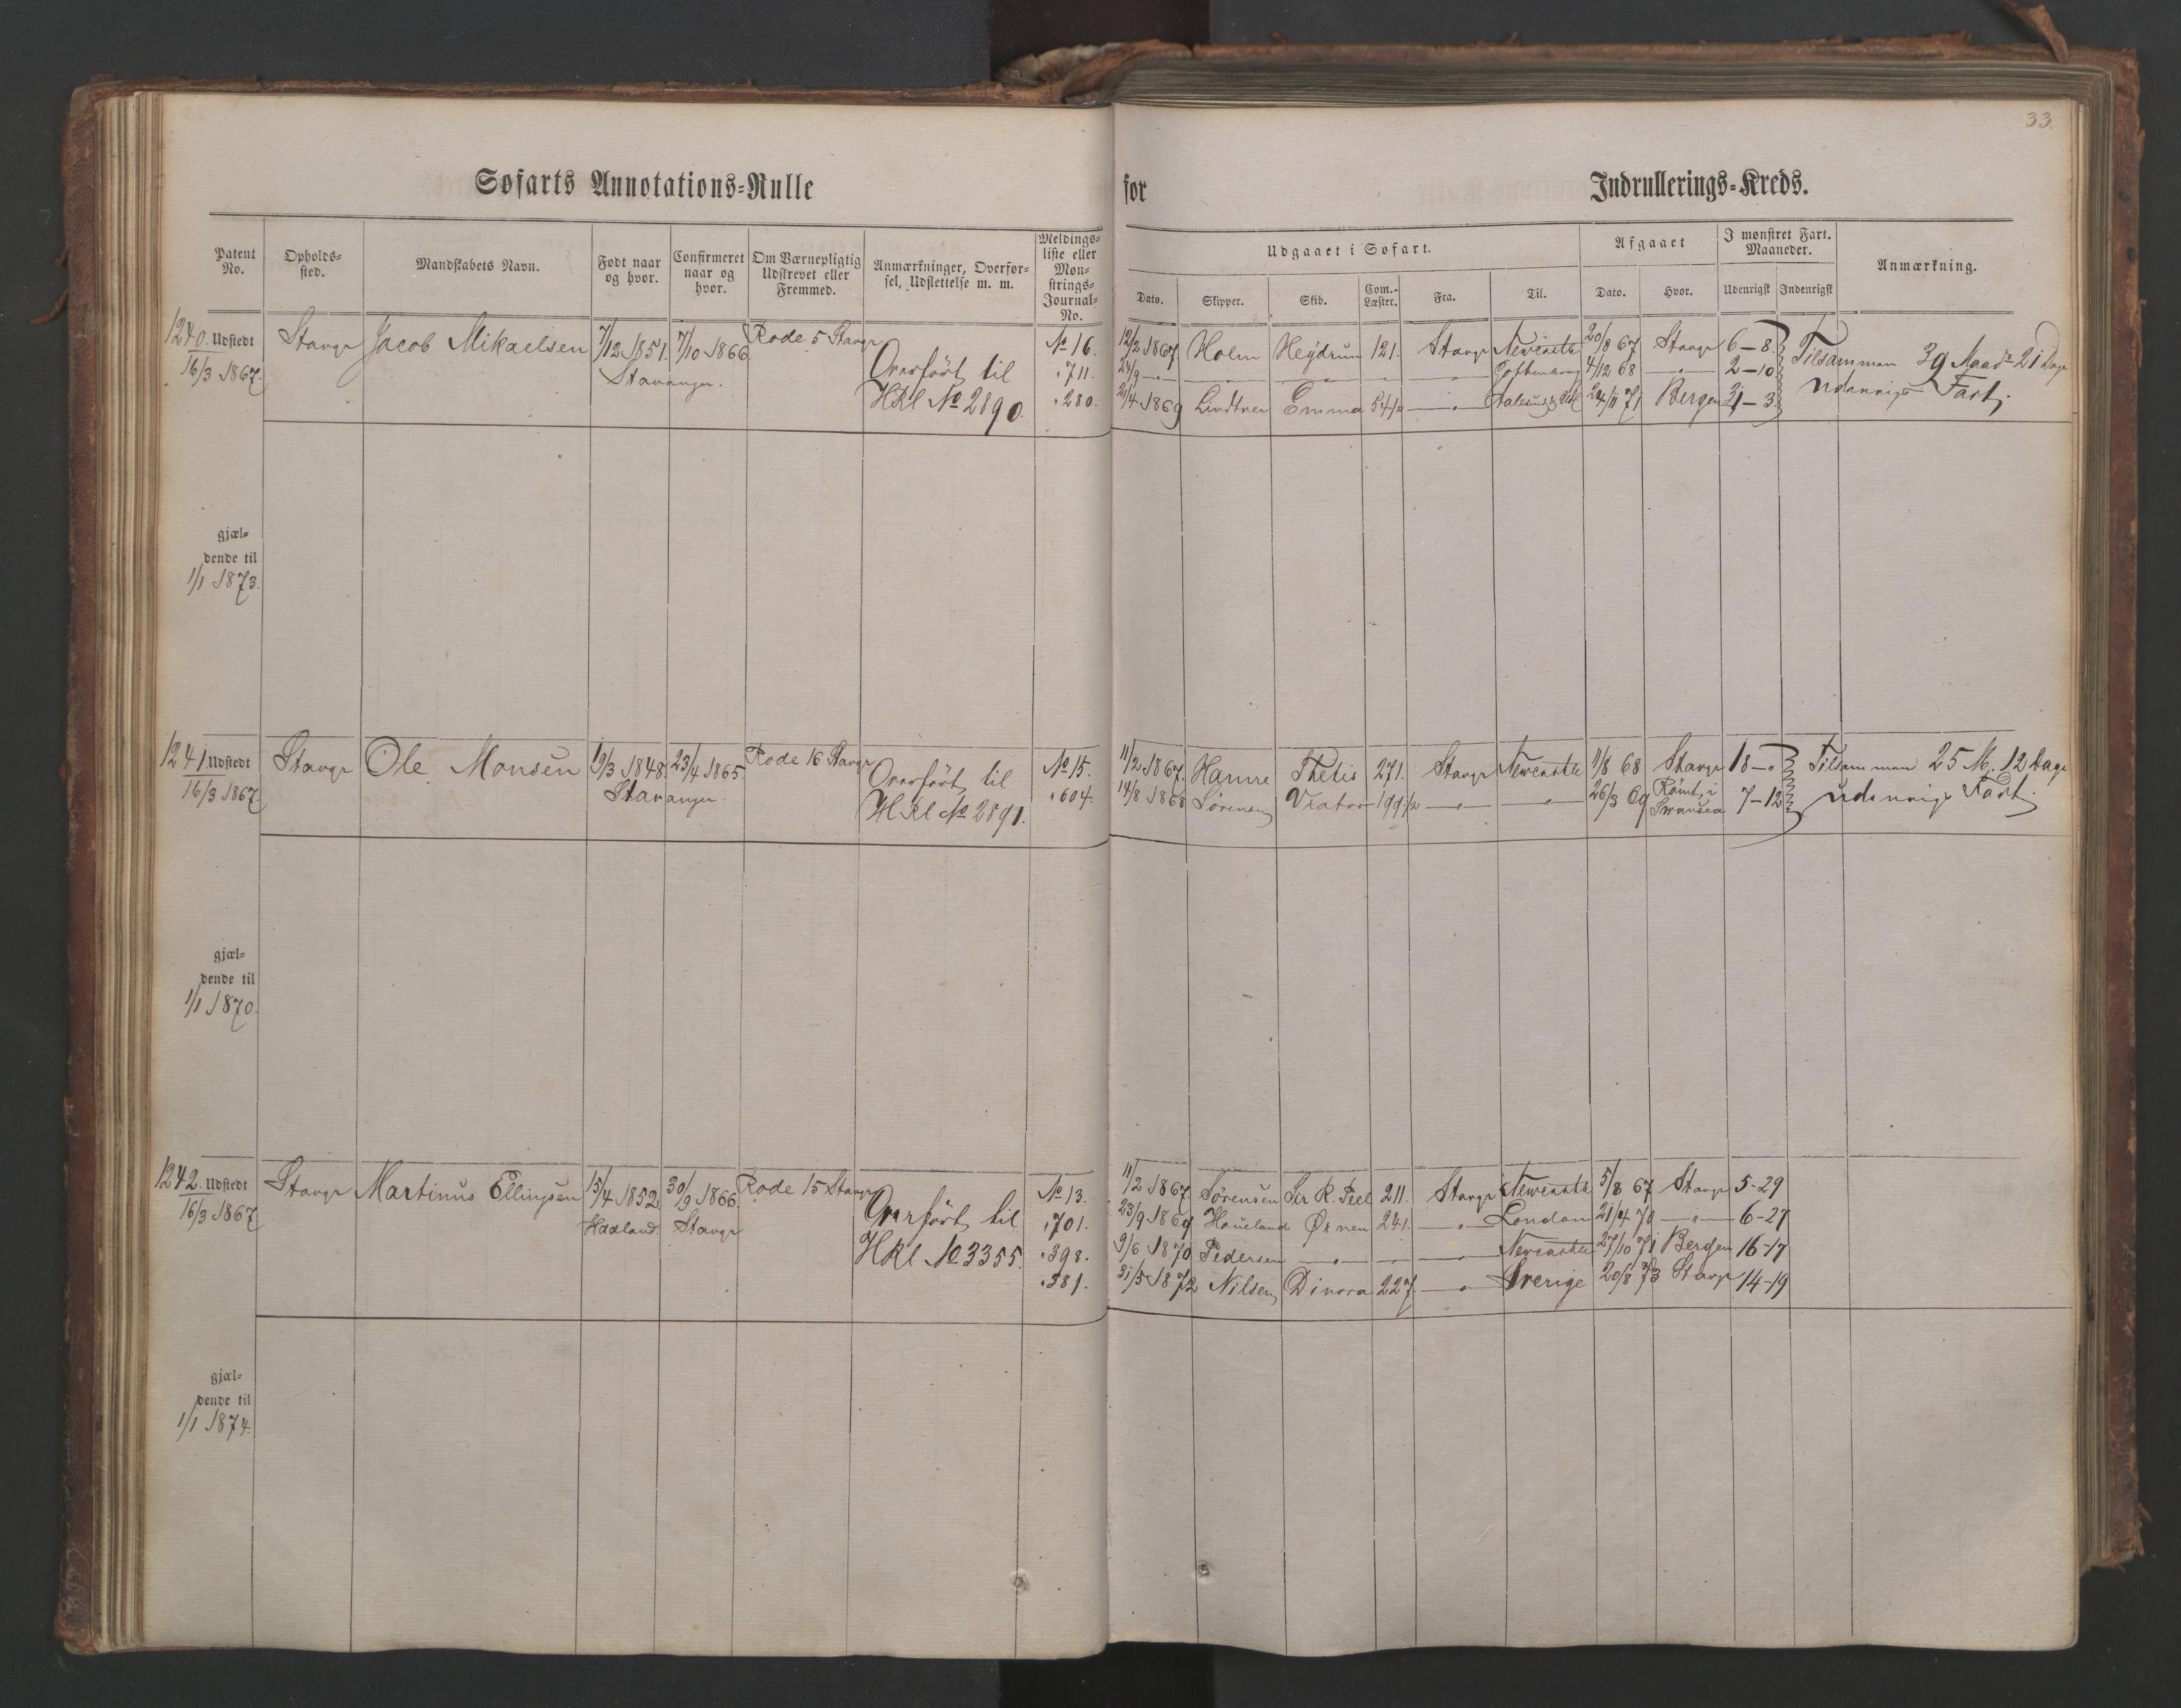 33.
Søfarts Annotations-Rulle for Indrullerings-Kreds.
Patent No.
Opholds-sted.
Mandskabets Navn.
Født naar og hvor.
Confirmeret naar og hvor.
Om Værnepligtig Udskrevet eller Fremmed.
Anmærkninger, Overførsel, Udslettelse m. m.
Meldingsliste eller Mønstrings-Journal-No.
Udgaaet i Søfart.
Dato. Skipper. Skib. Com.-Læster. Fra. Til.
Afgaaet
Dato. Hvor.
I mønstret Fart. Maaneder.
Udenrigsk Indenrigsk
Anmærkning.
1240. Udstedt
16/3 1867.
Stavgr Jacob Mikaelsen 7/12 1851. 7/10 1866. Rode 5 Stavgr
Stavanger.
Overført til
HRl No 2890.
No 16.
" 711.
" 280.
12/2 1867 Holm Heydrun 121. Stavgr Newcastle 20/8 67 Stavgr 6-8.
24/9 — " — 4/12 68 — " — 2-10
21/4 1869 Lindtner Emma 54 1/2 — " — 24/11 71 Bergen 31-3.
Tilsammen 39 Maadr 21 Dage
udenrigs Fart.
gjæl-
dende til
1/1 1873.
1241. Udstedt
16/3 1867.
Stavgr Ole Monsen 19/3 1848. 23/4 1865. Rode 16 Stavgr
Stavanger.
Overført til
HRl No 2891.
No 15.
" 604.
11/2 1867. Hanne Thetis 271. Stavgr Newcastle 11/8 68 Stavgr 18-"
14/8 1868 Sørensen Viator 199 1/2 — " — — " — 26/3 69 Rømt i Swansea 7-12
Tilsammen 25 M. 12 Dage
udenrigs Fart.
gjæl-
dende til
1/1 1870.
1242. Udstedt
16/3 1867
Stavgr Martinus Ellingsen 15/4 1852. 30/9 1866. Rode 15 Stavgr
Haaland. Stavgr
Overført til
HRl No 3355.
No 13.
" 701.
" 398.
" 381.
11/2 1867 Sørensen Sir R. Peel 211. Stavgr Newcastle 5/8 67 Stavgr 5-29
23/9 1869 Haueland Ørnen 241. — " — London 21/4 70 — " — 6-27
9/6 1870 Pedersen — " — — " — Newcastle 27/10 71 Bergen 16-17
31/5 1872 Nilsen Dinora 227. — " — Sverige 20/8 73 Stavgr 14-19
gjæl-
dende til
1/1 1874.